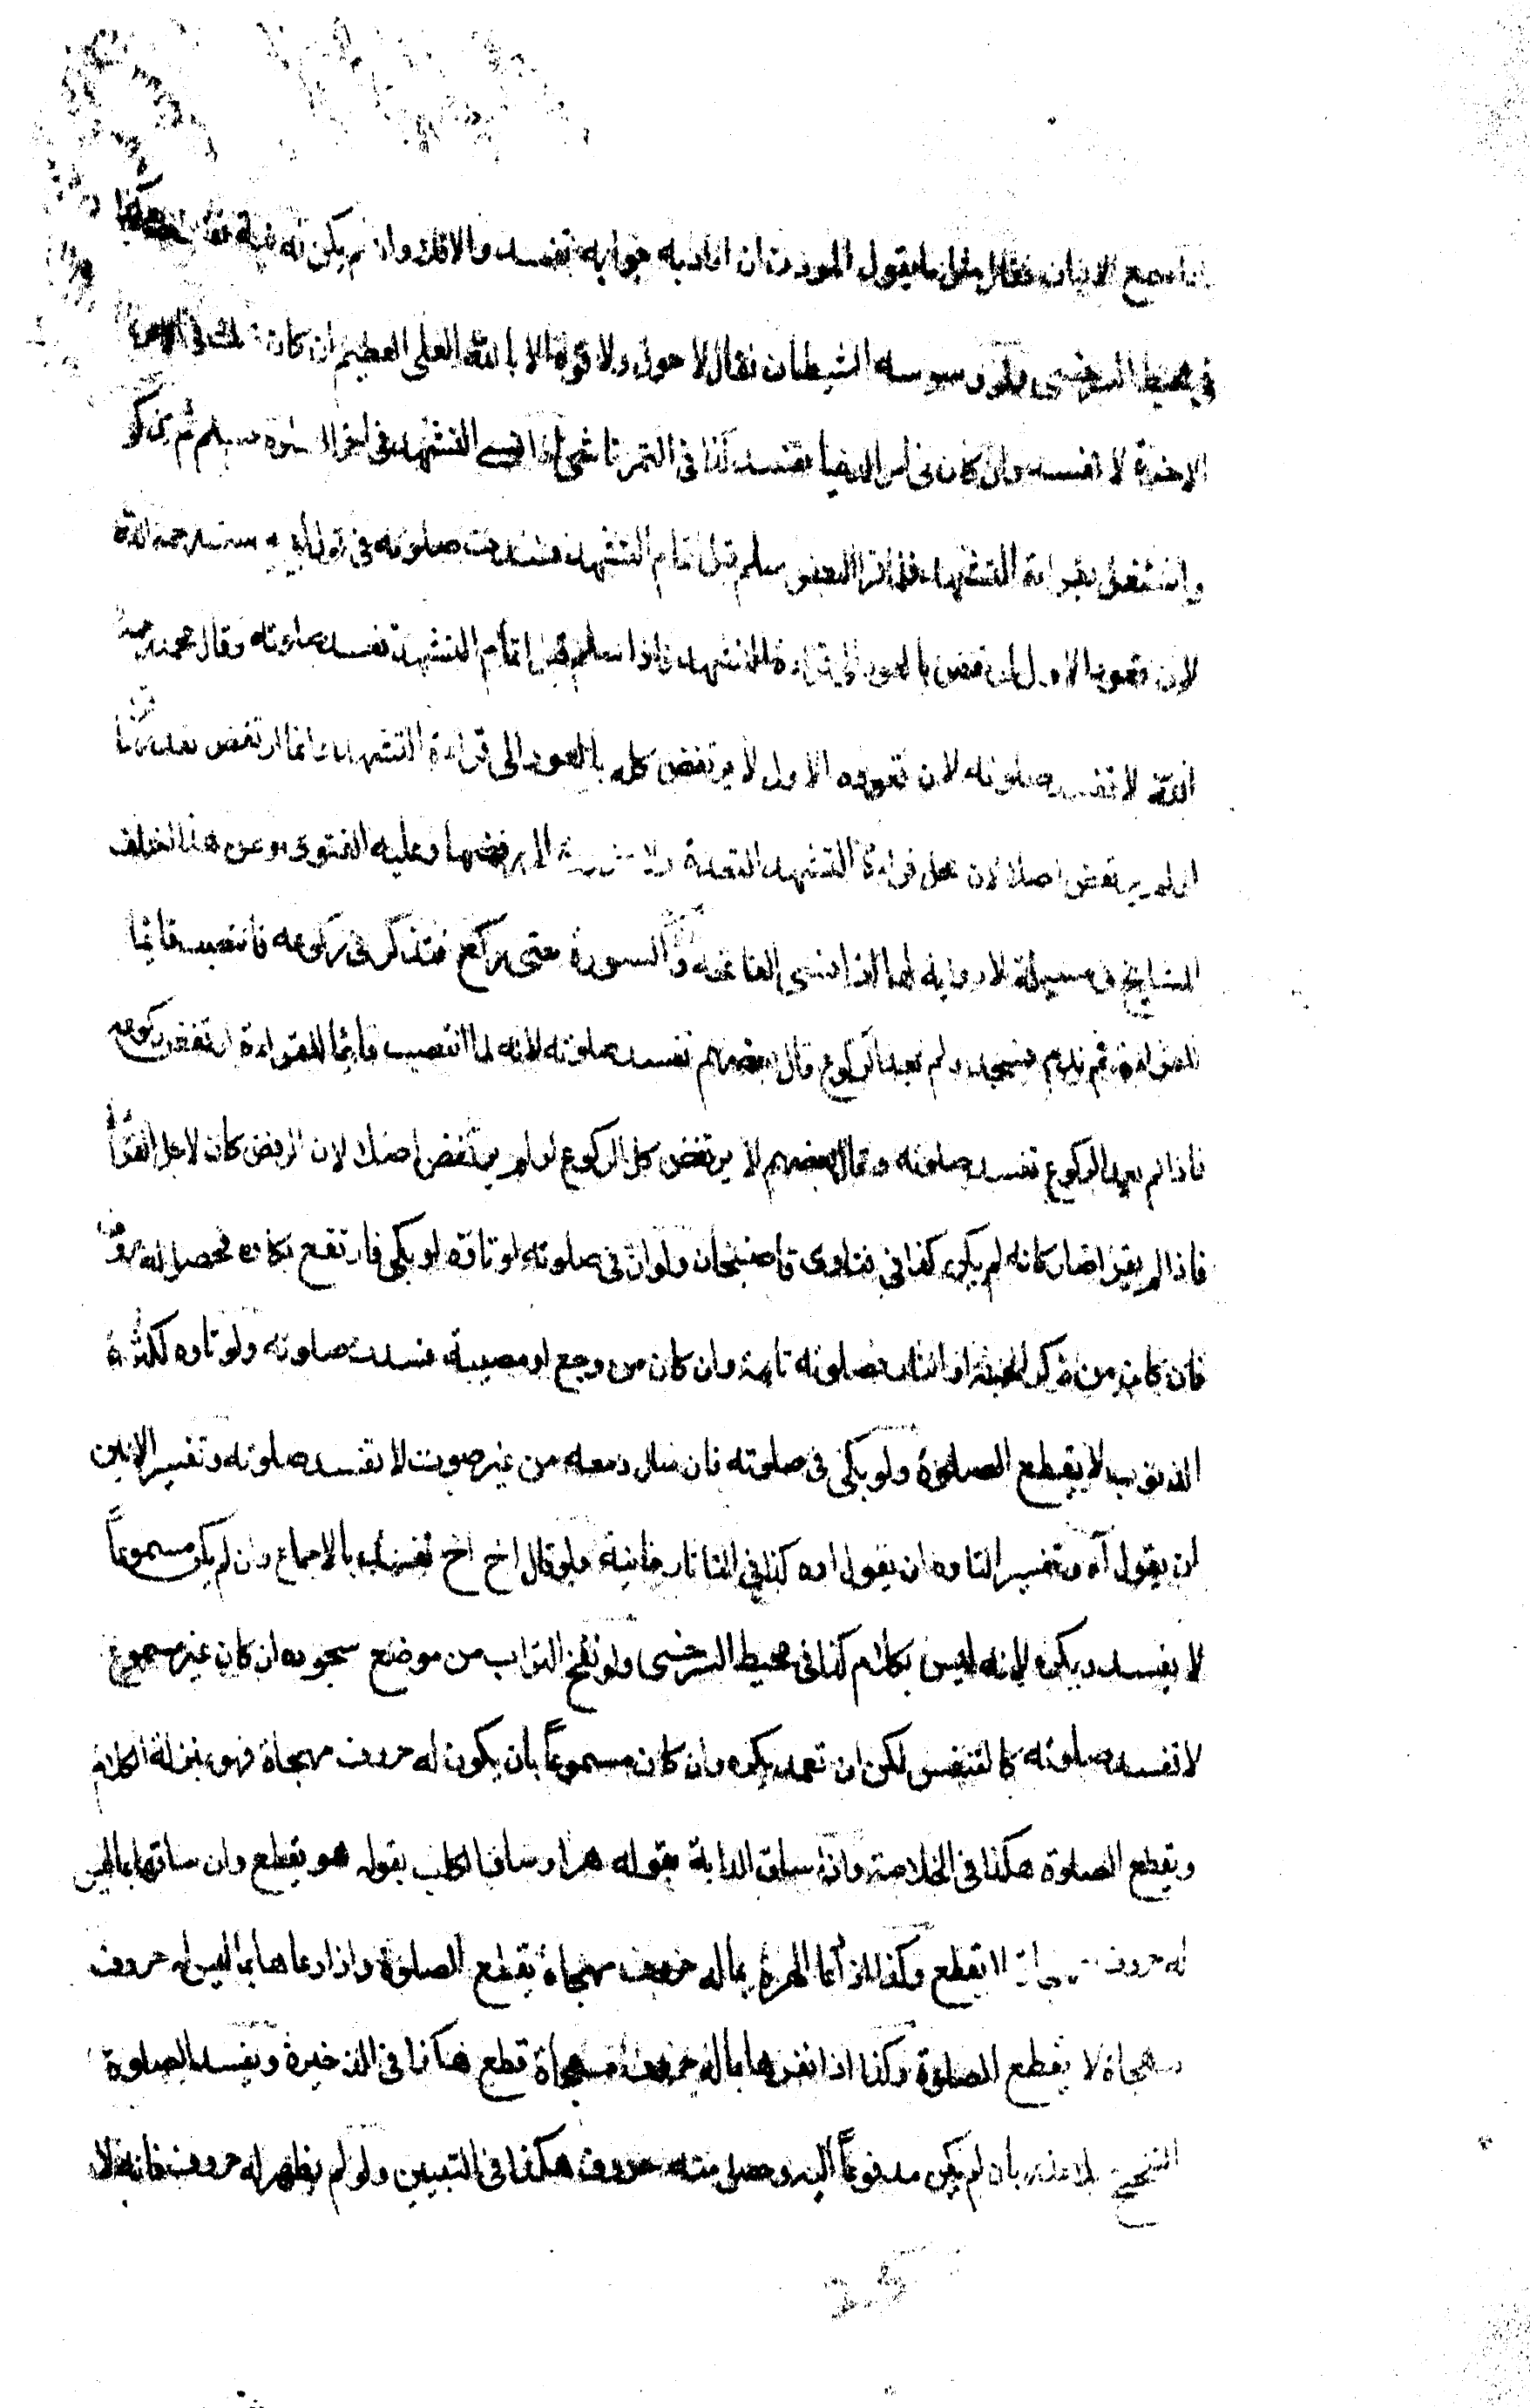 اذا سمع الاذان فقال مثل ما يقول الموذن ان اراد به جوابه تفسد والا فلا وان لم يكن له نية تفسد هكذا
في محيط السرخسى ولو وسوسه الشيطان فقال لا حول ولا قوة الا بالله العلى العظيم ان كان ذلك فى امر
الاخرة لا تفسد وان كان فى امر الدنيا تفسد كذا فى التمرتاشى اذا نسى التشهد فى اخر الصلوة سلم ثم تذكر
واشتغل بقراءة التشهد فلما قرا البعض سلم قبل تمام التشهد فسدت صلوته فى قول ابى يوسف رحمه الله
لان قعوده الاول ارتفض بالعود الى قراءة التشهد فاذا سلم قبل اتمام التشهد تفسد صلوته وقال محمد رحمه
الله لا تفسد صلوته لان قعوده الاول لا يرتفض كله بالعود الى قراءة التشهد وانما ارتفض بقدر ما قرا
او لم يرتفض اصلا لان محل قراءة التشهد القعدة ولا ضرورة الى رفضها وعليه الفتوى وعن هذا اختلف
المشايخ فى مسيلة لا رواية لها اذا نسى الفاتحة و السورة حتى ركع فتذكر فى ركوعه فانتصب قايما
للقراءة ثم ندم فسجد ولم يعد الركوع قال بعضهم تفسد صلوته لانه لما انتصب قايما للقراءة ارتفض ركوعه
فاذا لم يعد الركوع تفسد صلوته وقال بعضهم لا يرتفض كل الركوع او لم يرتفض اصلا لان الرفض كان لاجل القراءة
فاذا لم يقرا صار كانه لم يكن كذا فى فتاوى قاضيخان ولو ان فى صلوته او تاوه او بكى فارتفع بكاوه فحصل له حروف
فان كان من ذكر الجنة او النار فصلوته تامة وان كان من وجع او مصيبة فسدت صلوته ولو تاوه لكثرة
الذنوب لا يقطع الصلوة ولو بكى فى صلوته فان سال دمعه من غير صوت لا تفسد صلوته وتفسير الانين
ان يقول آه وتفسير التاوه ان يقول اوه كذا فى التاتارخانية ولو قال اخ اخ تفسد بالاجماع وان لم يكن مسموعاً
لا يفسد ويكره لانه ليس بكلام كذا فى محيط السرخسى ولو نفخ التراب من موضع سجوده ان كان غير مسموع
لا تفسد صلوته كالتنفس لكن ان تعمد يكره وان كان مسموعاً بان يكون له حروف مهجاة فهو بمنزلة الكلام
ويقطع الصلوة هكذا فى الخلاصة واذا ساق الدابة بقوله هر او ساق الكلب بقوله هو يقطع وان ساقها بما ليس
له حروف مهجاة لا يقطع وكذا اذا دعا الهرة بما له حروف مهجاة يقطع الصلوة واذا دعاها بما ليس له حروف
مهجاة لا يقطع الصلوة وكذا اذا نفرها بما له حروف مهجاة قطع هكذا فى الذخيرة ويفسد الصلوة
التنحنح بلا عذر بان لم يكن مدفوعاً اليه وحصل منه حروف هكذا فى التبيين ولو لم يظهر له حروف فانه لا